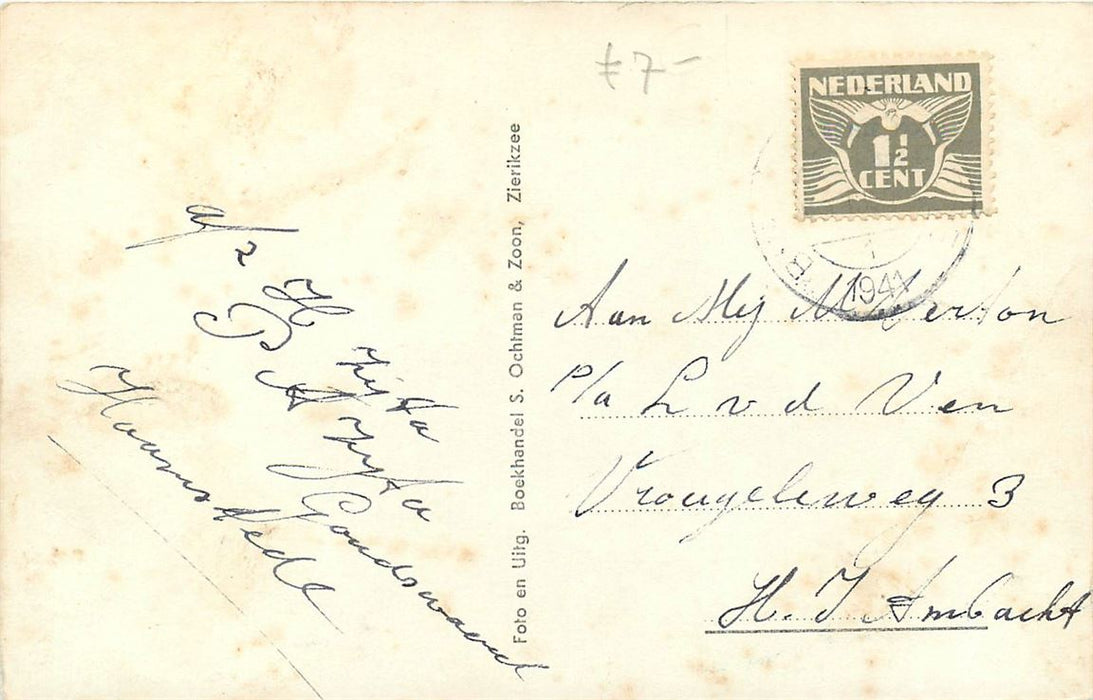 € 7-
NEDERLAND
1 1/2
CENT
1941
afz
H Zijta
P A Zijta
Goudswaard
Haamstede
Foto en Uitg. Boekhandel S. Ochtman & Zoon, Zierikzee
Aan Mej M
p/a L v d Ven
Vrougeleweg 3
H. I Ambacht